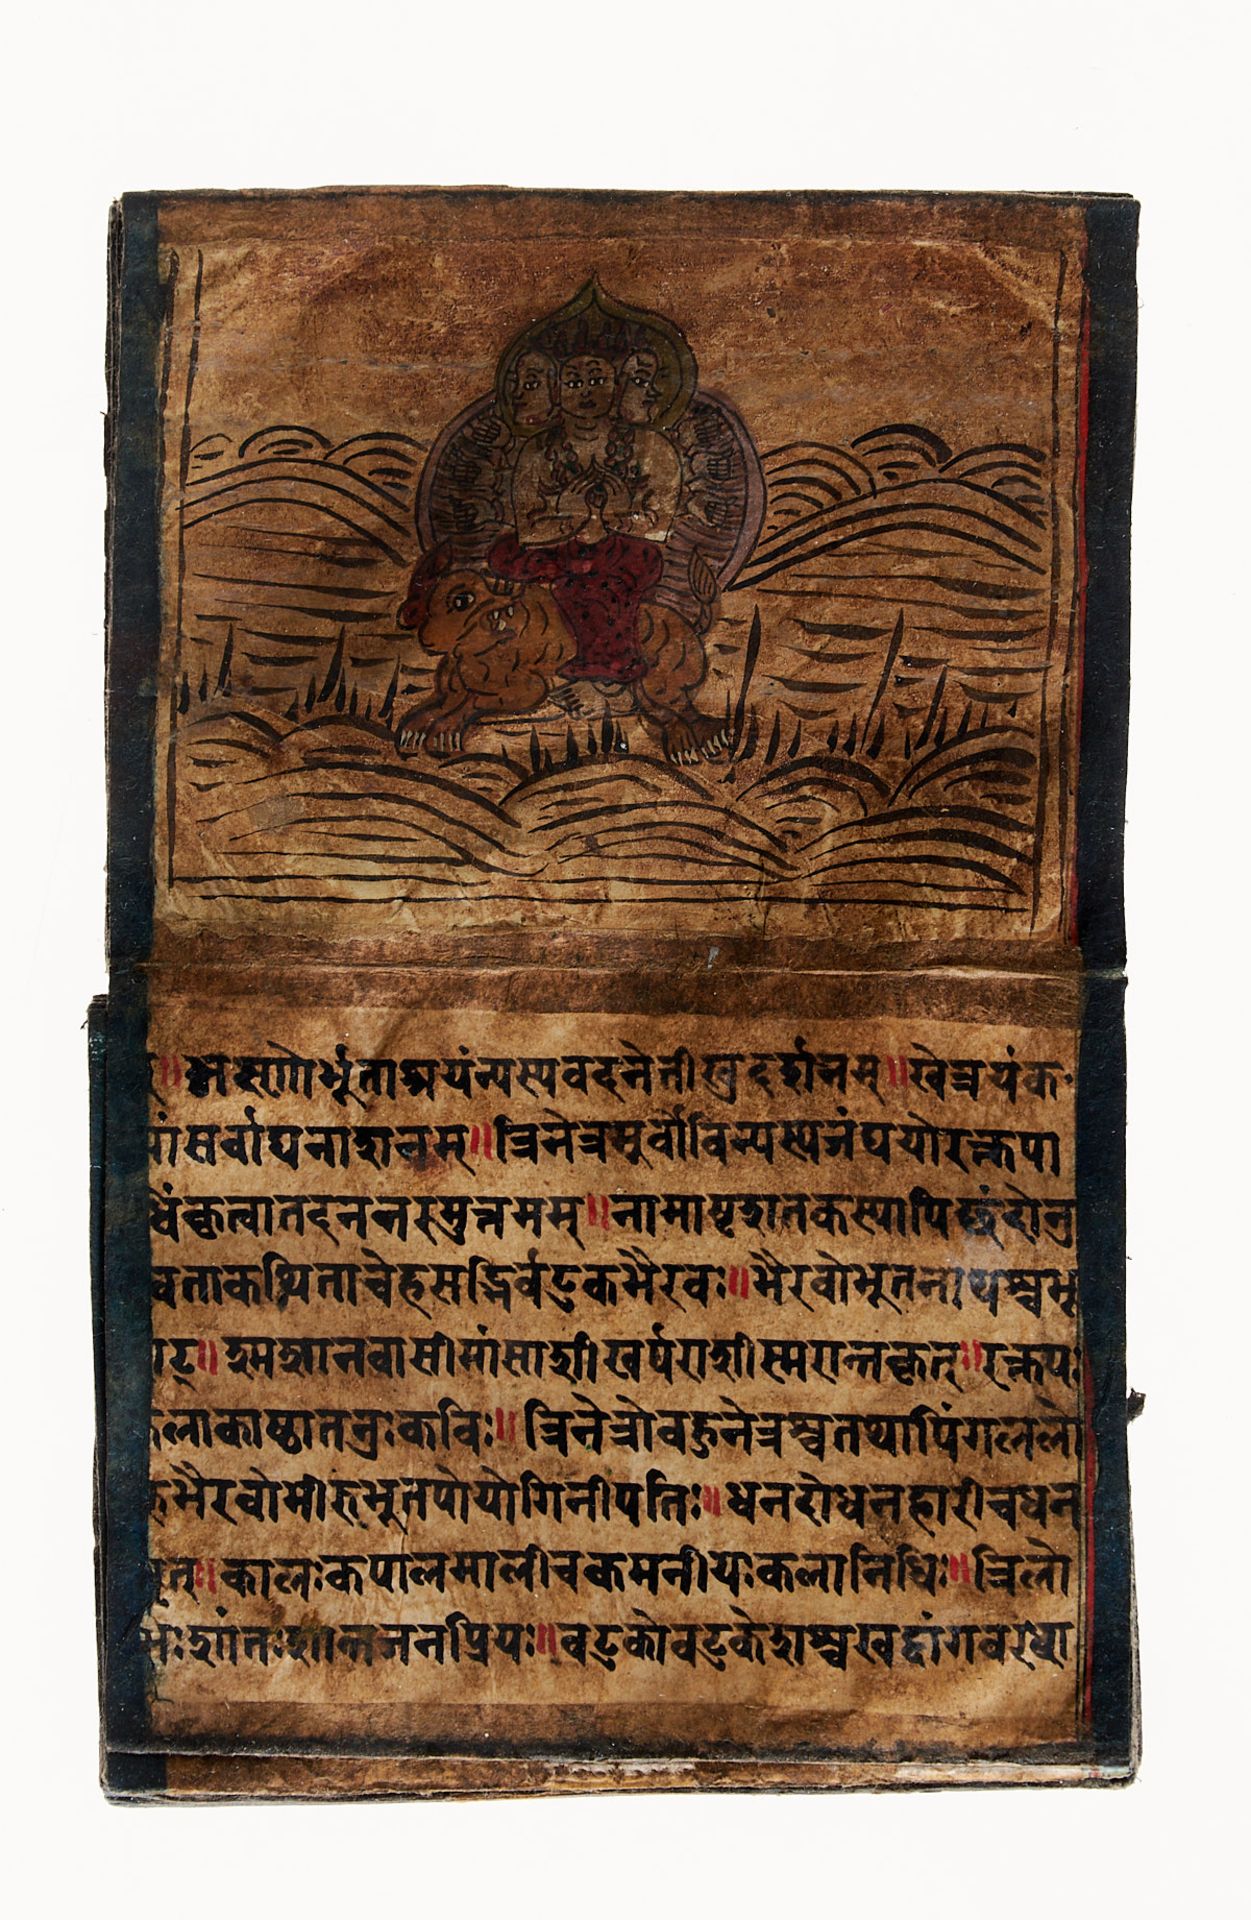 ॥ अक्ष्णोर्भूताश्रयंन्यस्यवदनेतीक्ष्णदर्शनम्॥क्षेत्रपंक
सर्वाघनाशनम्॥त्रिनेत्रमूर्वोविन्यस्यजंघयोरक्तपा
कृत्वातदनन्तरुमुत्तमम्॥नामाष्टशतकस्यापिछंदोनु
वताकथिताचेहसद्भिर्वटुकभैरवः॥भैरवोभूतनाथश्चभू
ट्॥श्मशानवासीमांसाशीखर्पराशीस्मरान्तकृत्॥रक्तपः
कलाकाष्ठातनुःकविः॥त्रिनेत्रोबहुनेत्रश्चतथापिंगललो
भैरवोभीरुभूतपोयोगिनीपतिः॥धनदोधनहारीचधन
त्॥कालःकपालमालीचकमनीयःकलानिधिः॥त्रिलो
शांतःशान्तजनप्रियः॥वटुकोवटुकेशश्चखट्वांगवरधा